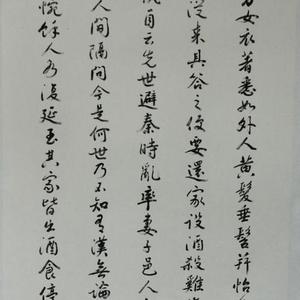 女衣著悉如外人黃髮垂髫并怡
從來具答之便要還家設酒殺雞
自云先世避秦時亂率妻子邑人
人間隔問今是何世乃不知有漢無論
惋餘人各復延至其家皆出酒食停